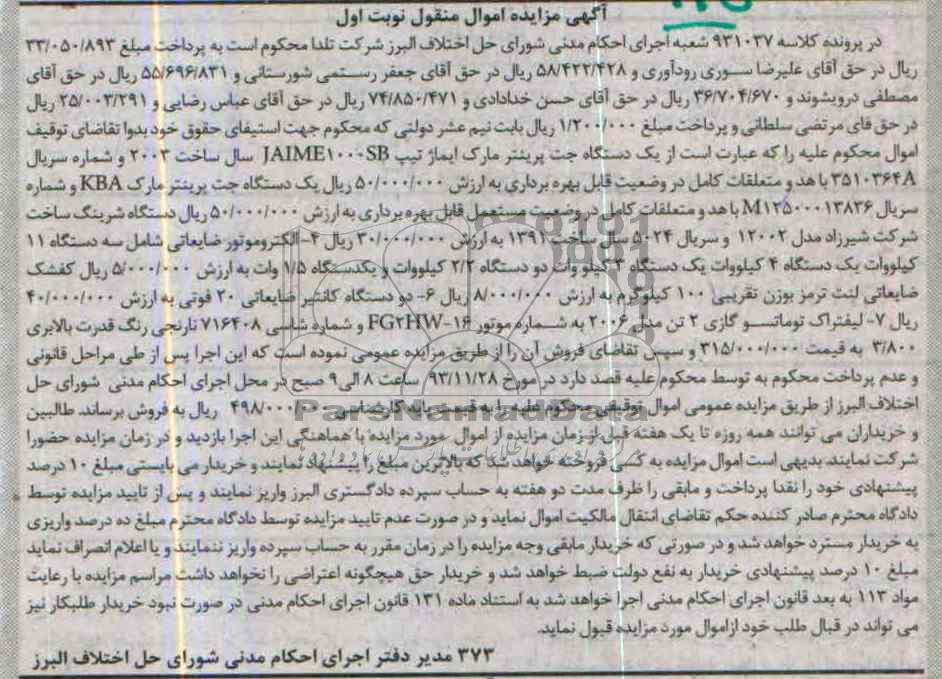 آگهی مزایده اموال منقول نوبت اول
در پرونده کلاسه ۹۳۱۰۳۷ شعبه اجرای احکام مدنی شورای حل اختلاف البرز شرکت تلدا محکوم است به پرداخت مبلغ ۳۳/۰۵۰/۸۹۳
ریال در حق آقای علیرضا سوری رودآوری و ۵۸/۴۲۲/۴۲۸ ریال در حق آقای جعفر رستمی شورستانی و ۵۵/۶۹۶/۸۳۱ ریال در حق آقای
مصطفی درویشوند و ۳۶/۷۰۴/۶۷۰ ریال در حق آقای حسن خدادادی و ۷۴/۸۵۰/۴۷۱ ریال در حق آقای عباس رضایی و ۲۵/۰۰۳/۲۹۱ ریال
در حق قای مرتضی سلطانی و پرداخت مبلغ ۱/۲۰۰/۰۰۰ ریال بابت نیم عشر دولتی که محکوم جهت استیفای حقوق خود بدوا تقاضای توقیف
اموال محکوم علیه را که عبارت است از یک دستگاه جت پرینتر مارک ایماژ تیپ JAIME۱۰۰۰SB سال ساخت ۲۰۰۳ و شماره سریال
۳۵۱۰۳۶۴A با هد و متعلقات کامل در وضعیت قابل بهره برداری به ارزش ۵۰/۰۰۰/۰۰۰ ریال یک دستگاه جت پرینتر مارک KBA و شماره
سریال M۱۲۵۰۰۰۱۳۸۳۶ با هد و متعلقات کامل در وضعیت مستعمل قابل بهره برداری به ارزش ۵۰/۰۰۰/۰۰۰ ریال دستگاه شرینگ ساخت
شرکت شیرزاد مدل ۱۲۰۰۲ و سریال ۵۰۲۴ سال ساخت ۱۳۹۱ به ارزش ۳۰/۰۰۰/۰۰۰ ریال ۴-الکتروموتور ضایعاتی شامل سه دستگاه ۱۱
کیلووات یک دستگاه ۴ کیلووات یک دستگاه ۳ کیلو وات دو دستگاه ۲/۲ کیلووات و یکدستگاه ۱/۵ وات به ارزش ۵/۰۰۰/۰۰۰ ریال کفشک
ضایعاتی لنت ترمز بوزن تقریبی ۱۰۰ کیلوگرم به ارزش ۸/۰۰۰/۰۰۰ ریال ۶- دو دستگاه کانتینر ضایعاتی ۲۰ فوتی به ارزش ۴۰/۰۰۰/۰۰۰
ریال ۷- لیفتراک توماتسو گازی ۲ تن مدل ۲۰۰۶ به شماره موتور FG۲HW-۱۶ و شماره شاسی ۷۱۶۴۰۸ نارنجی رنگ قدرت بالابری
۳/۸۰۰ به قیمت ۳۱۵/۰۰۰/۰۰۰ و سپس تقاضای فروش آن را از طریق مزایده عمومی نموده است که این اجرا پس از طی مراحل قانونی
و عدم پرداخت محکوم به توسط محکوم علیه قصد دارد در مورخ ۹۳/۱۱/۲۸ ساعت ۸ الی ۹ صبح در محل اجرای احکام مدنی شورای حل
اختلاف البرز از طریق مزایده عمومی اموال توقیفی محکوم علیه را به قیمت پایه کارشناسی ۴۹۸/۰۰۰/۰۰۰ ریال به فروش برساند. طالبین
و خریداران می توانند همه روزه تا یک هفته قبل از زمان مزایده از اموال مورد مزایده با هماهنگی این اجرا بازدید و در زمان مزایده حضورا
شرکت نمایند. بدیهی است اموال مزایده به کسی فروخته خواهد شد که بالاترین مبلغ را پیشنهاد نمایند و خریدار می بایستی مبلغ ۱۰ درصد
پیشنهادی خود را نقدا پرداخت و مابقی را ظرف مدت دو هفته به حساب سپرده دادگستری البرز واریز نمایند و پس از تایید مزایده توسط
دادگاه محترم صادر کننده حکم تقاضای انتقال مالکیت اموال نماید و در صورت عدم تایید مزایده توسط دادگاه محترم مبلغ ده درصد واریزی
به خریدار مسترد خواهد شد و در صورتی که خریدار مابقی وجه مزایده را در زمان مقرر به حساب سپرده واریز ننمایند و یا اعلام انصراف نماید
مبلغ ۱۰ درصد پیشنهادی خریدار به نفع دولت ضبط خواهد شد و خریدار حق هیچگونه اعتراضی را نخواهد داشت مراسم مزایده با رعایت
مواد ۱۱۳ به بعد قانون اجرای احکام مدنی اجرا خواهد شد به استناد ماده ۱۳۱ قانون اجرای احکام مدنی در صورت نبود خریدار طلبکار نیز
می تواند در قبال طلب خود ازاموال مورد مزایده قبول نماید.
۳۷۳ مدیر دفتر اجرای احکام مدنی شورای حل اختلاف البرز